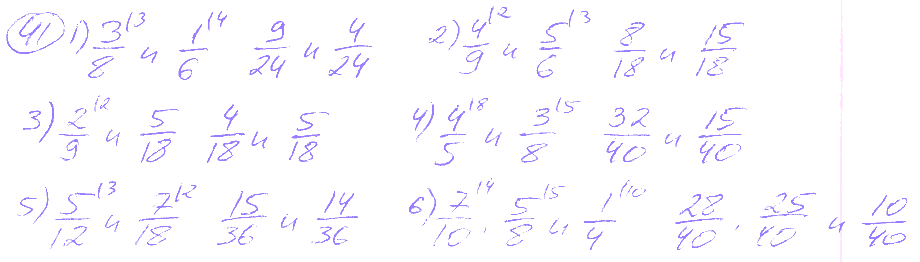 41 1) 3/8 \3 и 1/6 \4 9/24 и 4/24 2) 4/9 \2 и 5/6 \3 8/18 и 15/18
3) 2/9 \2 и 5/18 4/18 и 5/18 4) 4/5 \8 и 3/8 \5 32/40 и 15/40
5) 5/12 \3 и 7/18 \2 15/36 и 14/36 6) 7/10 \4, 5/8 \5 и 1/4 \10 28/40, 25/40 и 10/40